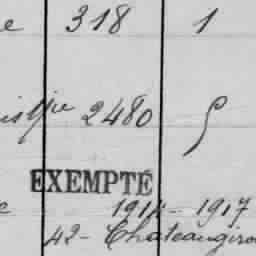 e 318 1
2480 5
EXEMPTÉ
e 1914 - 1917
42 - Chateaugiro